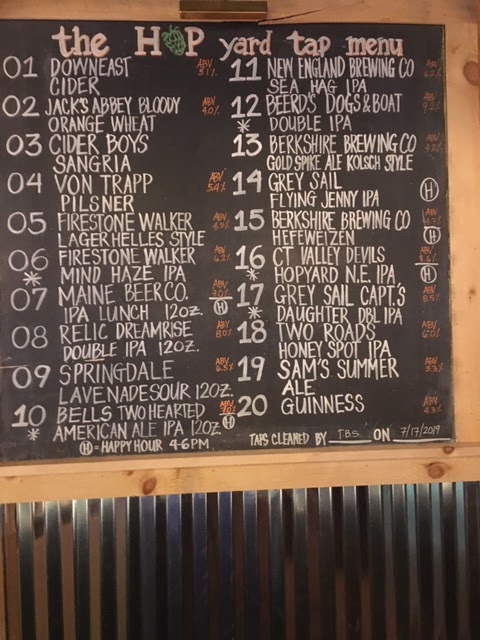 the HOP yard tap menu
01 DOWNEAST ABV 5.1%
CIDER
02 JACK'S ABBEY BLOODY ABV 4.0%
ORANGE WHEAT
03 CIDER BOYS
SANGRIA
04 VON TRAPP ABV 5.4%
PILSNER
05 FIRESTONE WALKER ABV
LAGER HELLES STYLE
06 FIRESTONE WALKER ABV 6.2%
* MIND HAZE IPA
07 MAINE BEER CO. ABV 7.0%
IPA LUNCH 12OZ. H
08 RELIC DREAMRISE ABV 8.0%
DOUBLE IPA 12OZ.
09 SPRINGDALE ABV 6.5%
LAVENADE SOUR 12OZ.
10 BELLS TWO HEARTED ABV 7.0%
* AMERICAN ALE IPA 12OZ. H
H = HAPPY HOUR 4-6PM
11 NEW ENGLAND BREWING CO ABV 6.2%
SEA HAG IPA
12 BEER'D DOGS & BOAT ABV 9.2%
* DOUBLE IPA
13 BERKSHIRE BREWING CO ABV
GOLD SPIKE ALE KOLSCH STYLE
14 GREY SAIL H
FLYING JENNY IPA
15 BERKSHIRE BREWING CO ABV
HEFEWEIZEN H
16 CT VALLEY DEVILS ABV
* HOPYARD N.E. IPA H
17 GREY SAIL CAPT.'S ABV 8.5%
* DAUGHTER DBL IPA
18 TWO ROADS ABV 6.0%
HONEY SPOT IPA
19 SAM'S SUMMER ABV 5.3%
ALE
20 GUINNESS ABV 4.3%
TAPS CLEANED BY TBS ON 7/17/2019